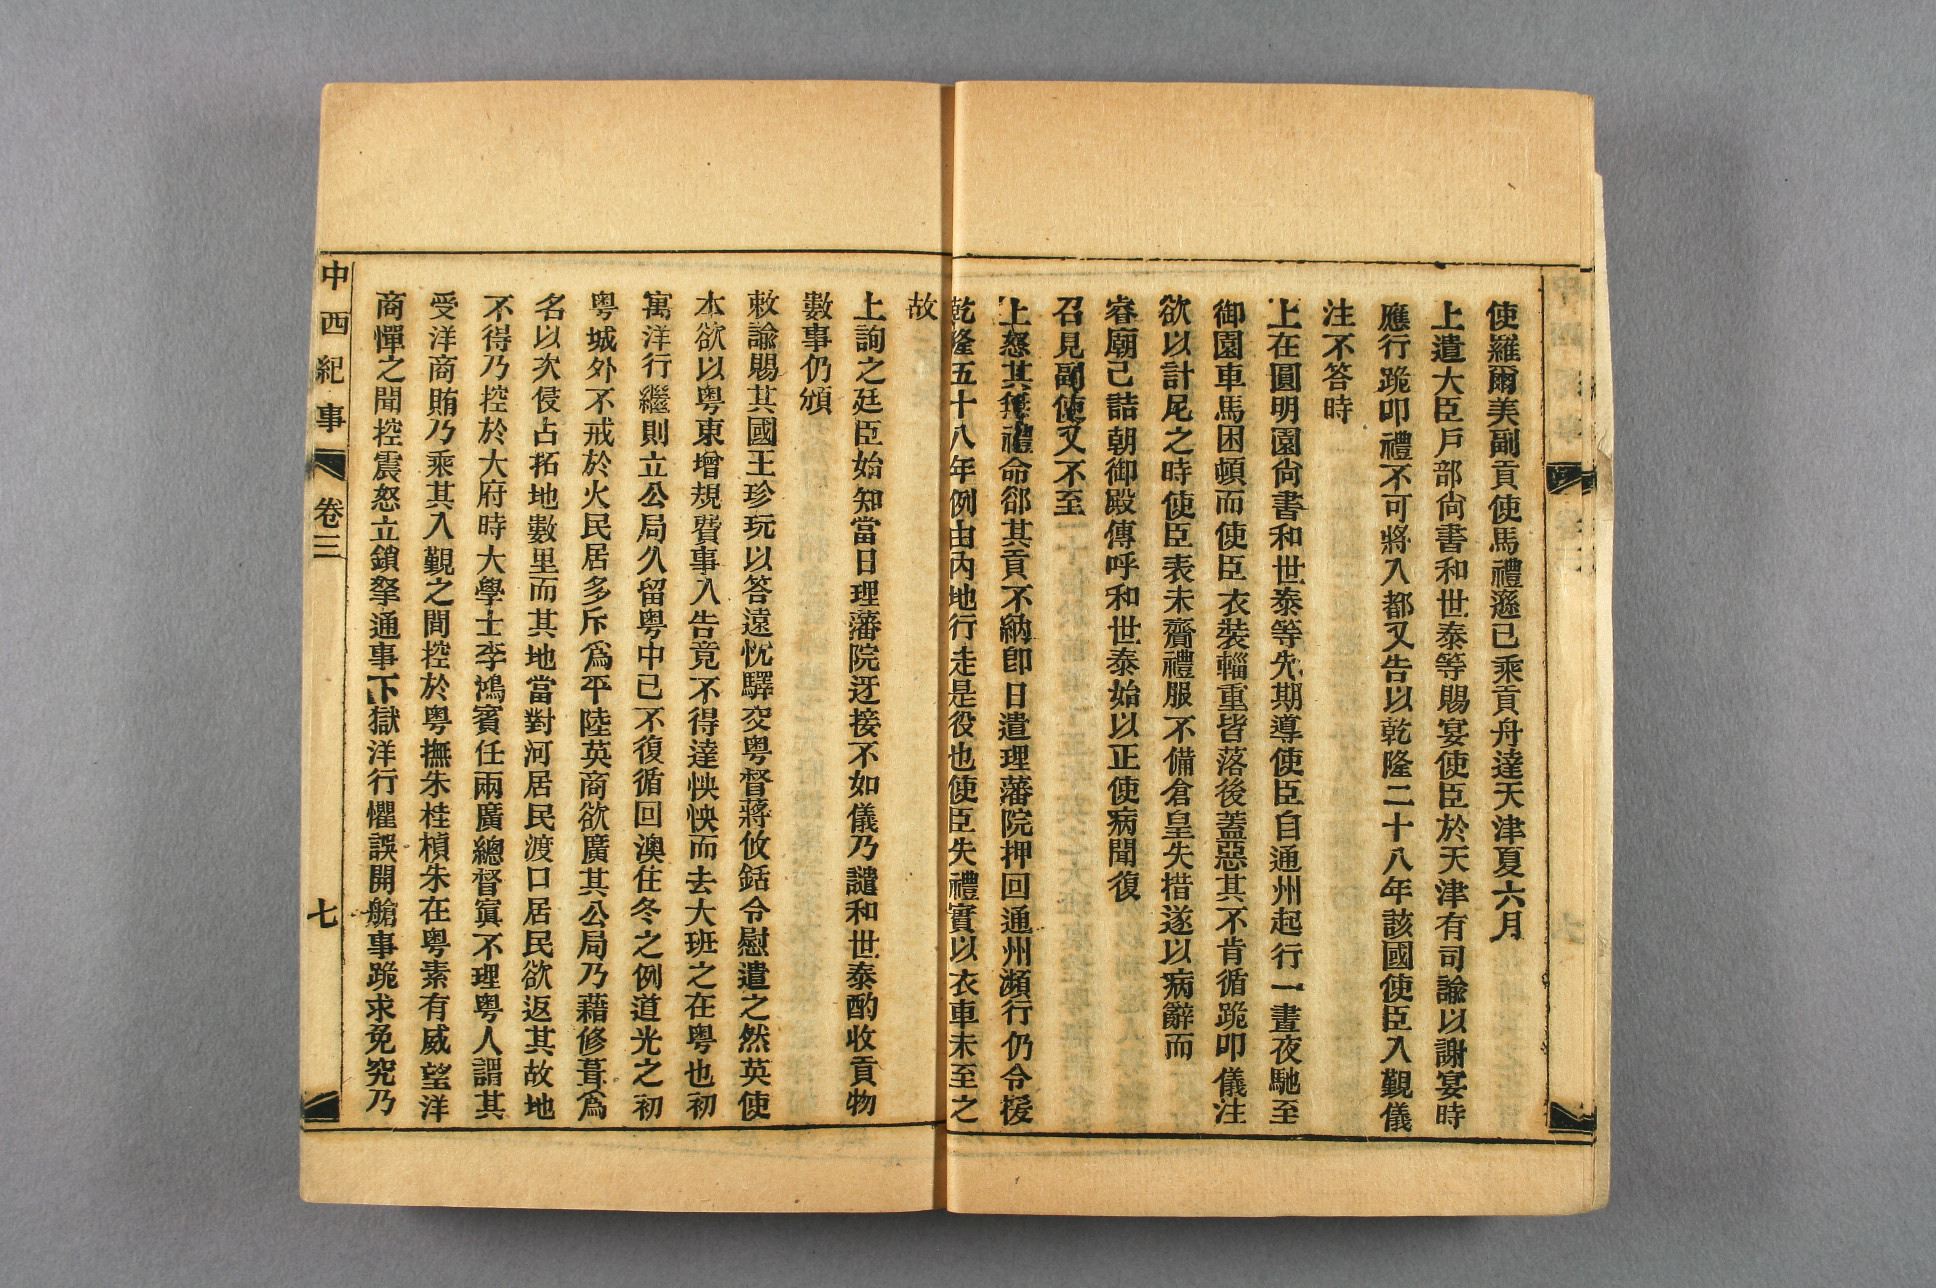 使羅爾美副貢使馬禮遜已乘貢舟達天津夏六月
上遣大臣戶部尙書和世泰等賜宴使臣於天津有司諭以謝宴時
應行跪叩禮不可將入都又告以乾隆二十八年該國使臣入覲儀
注不答時
上在圓明園尙書和世泰等先期導使臣自通州起行一晝夜馳至
御園車馬困頓而使臣衣裝輜重皆落後蓋惡其不肯循跪叩儀注
欲以計尼之時使臣表未齎禮服不備倉皇失措遂以病辭而
睿廟已詰朝御殿傳呼和世泰始以正使病聞復
召見副使又不至
上怒其無禮命郤其貢不納卽日遣理藩院押回通州瀕行仍令援
乾隆五十八年例由內地行走是役也使臣失禮實以衣車未至之
故
上詢之廷臣始知當日理藩院迓接不如儀乃譴和世泰酌收貢物
數事仍頒
敕諭賜其國王珍玩以答遠忱驛交粵督蔣攸銛令慰遣之然英使
本欲以粵東增規費事入告竟不得達怏怏而去大班之在粵也初
寓洋行繼則立公局久留粵中已不復循回澳住冬之例道光之初
粵城外不戒於火民居多斥爲平陸英商欲廣其公局乃藉修葺爲
名以次侵占拓地數里而其地當對河居民渡口居民欲返其故地
不得乃控於大府時大學士李鴻賓任兩廣總督寘不理粵人謂其
受洋商賄乃乘其入覲之間控於粵撫朱桂楨朱在粵素有威望洋
商憚之聞控震怒立鎖拏通事下獄洋行懼誤開艙事跪求免究乃
中西紀事 卷三 七